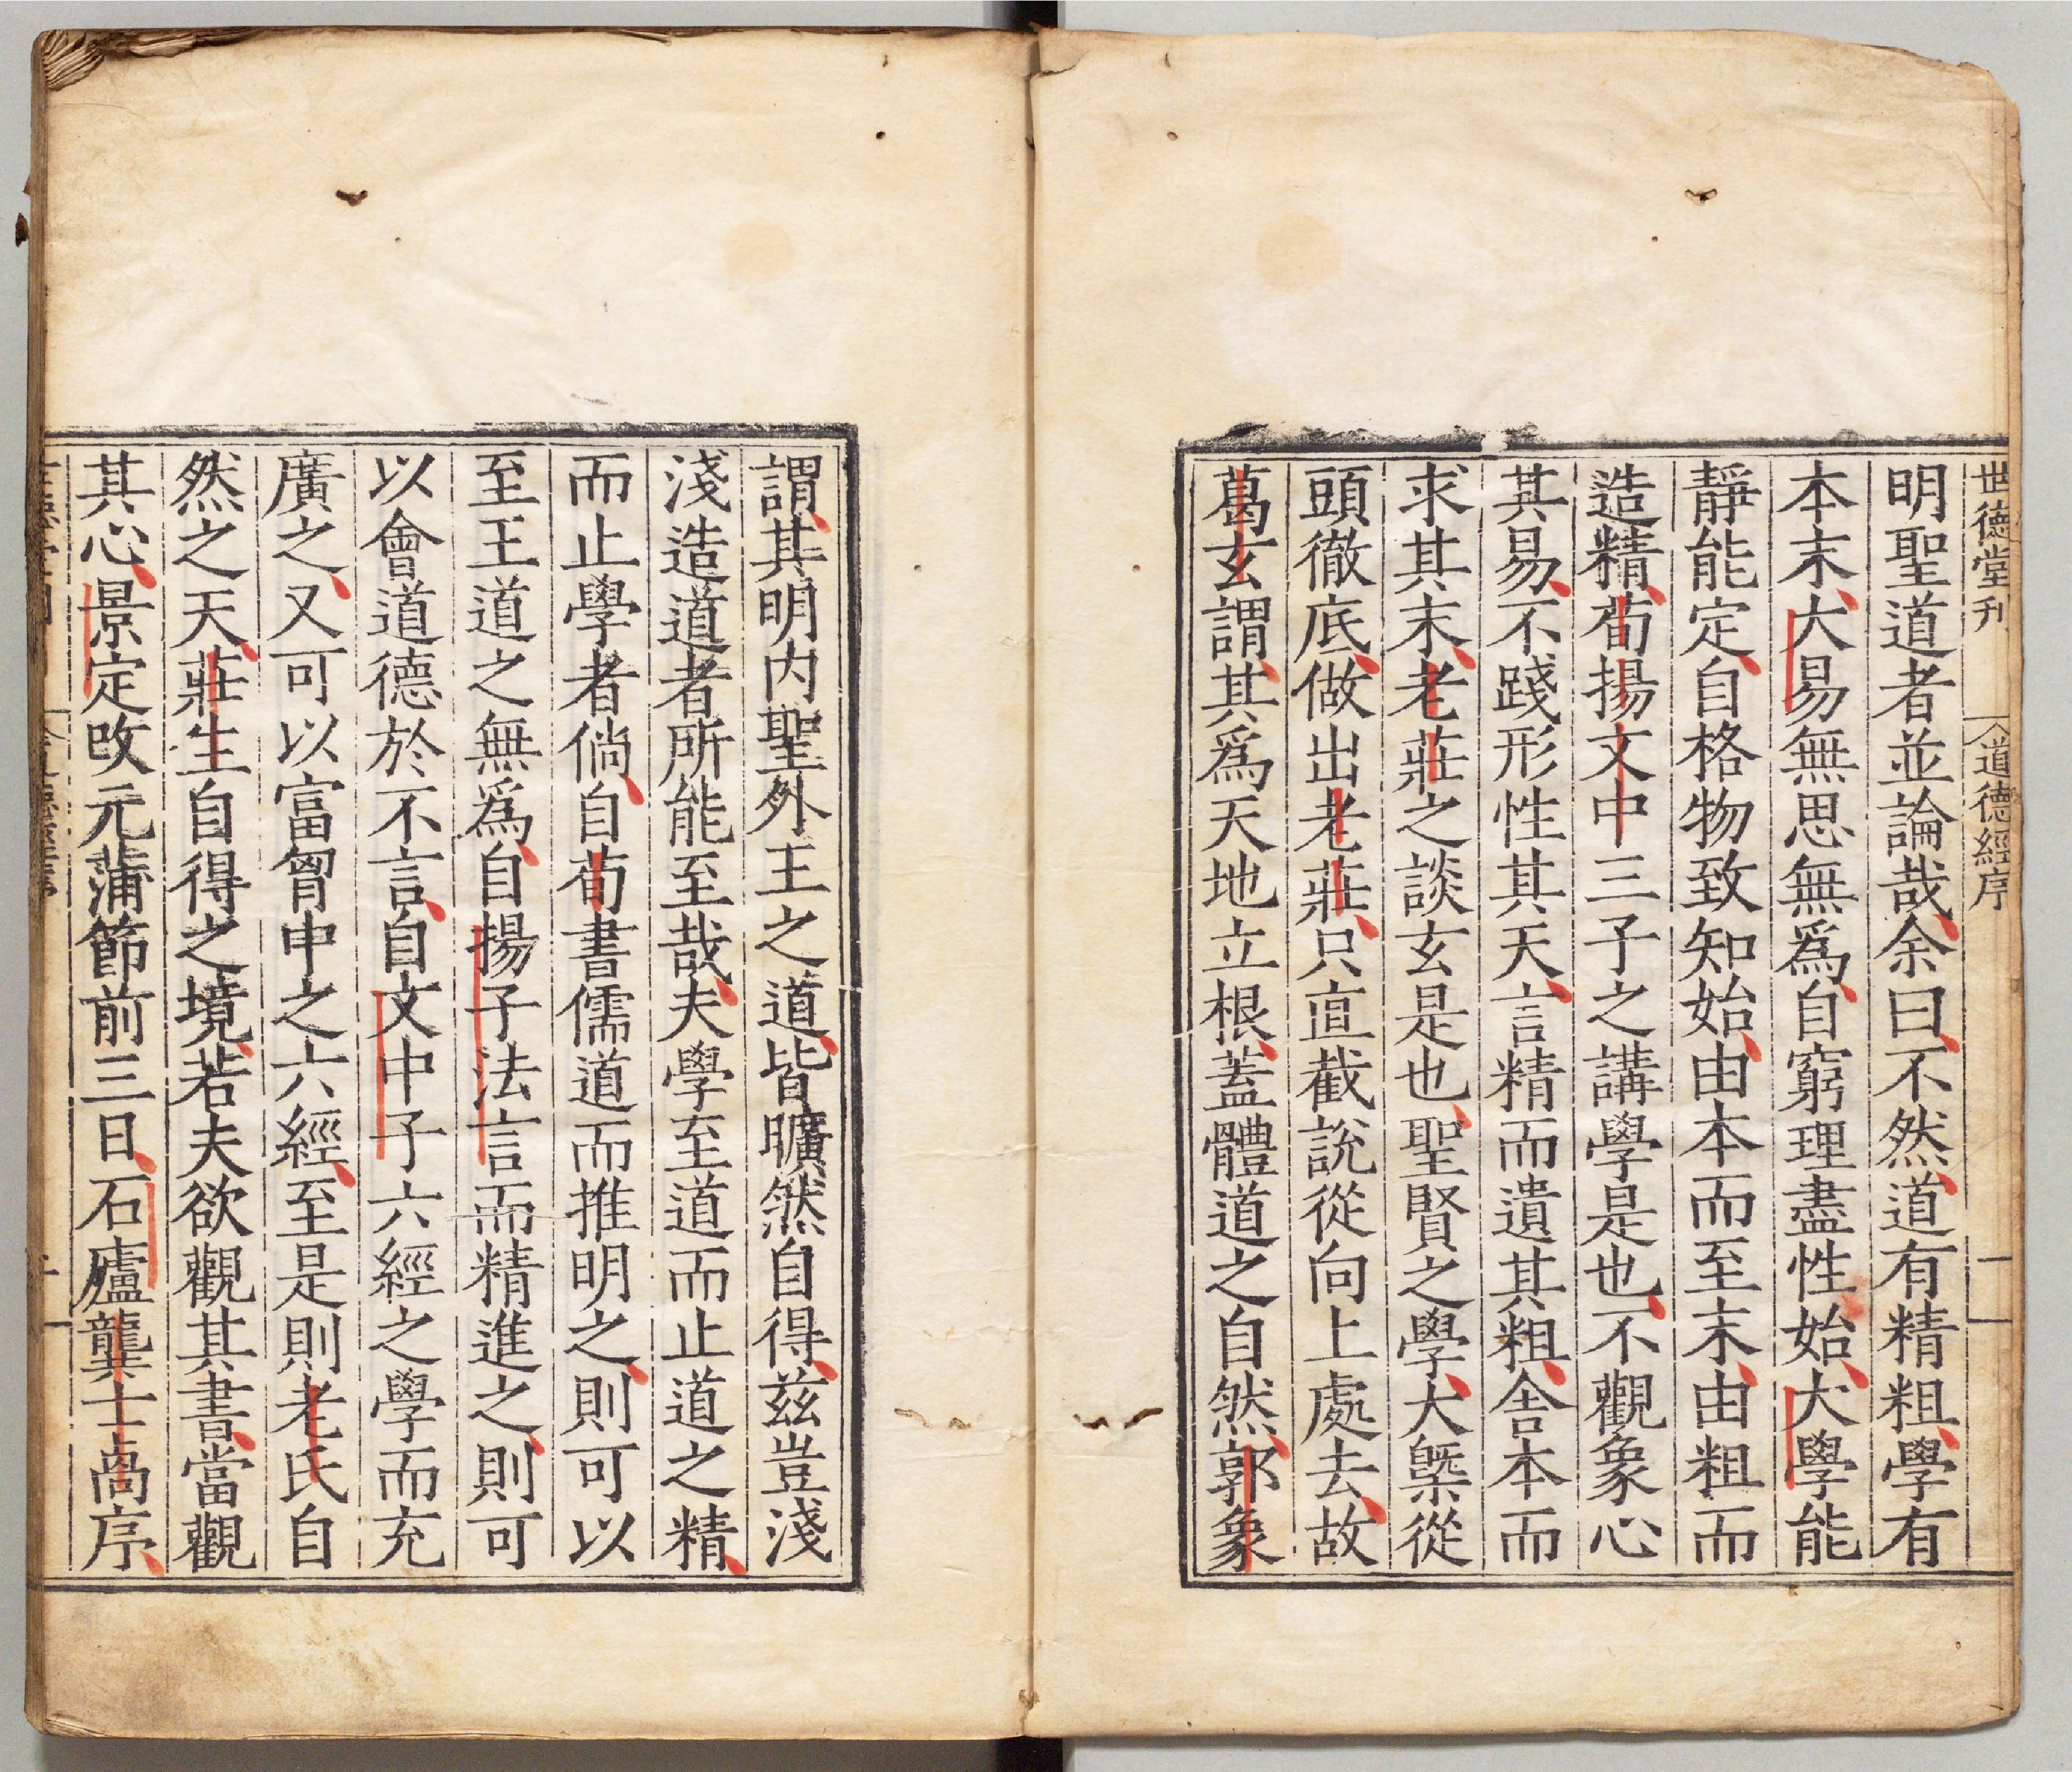 世德堂刊
道德經序
二
明聖道者並論哉余曰不然道有精粗學有
本末大易無思無爲自窮理盡性始大學能
靜能定自格物致知始由本而至末由粗而
造精荀揚文中三子之講學是也不觀象心
其易不踐形性其天言精而遺其粗舍本而
求其末老莊之談玄是也聖賢之學大槩從
頭徹底做出老莊只直截說從向上處去故
葛玄謂其爲天地立根蓋體道之自然郭象
謂其明内聖外王之道皆曠然自得兹豈淺
淺造道者所能至哉夫學至道而止道之精
而止學者倘自荀書儒道而推明之則可以
至王道之無爲自揚子法言而精進之則可
以會道德於不言自文中子六經之學而充
廣之又可以富胷中之六經至是則老氏自
然之天莊生自得之境若夫欲觀其書當觀
其心景定改元蒲節前三日石廬龔士卨序